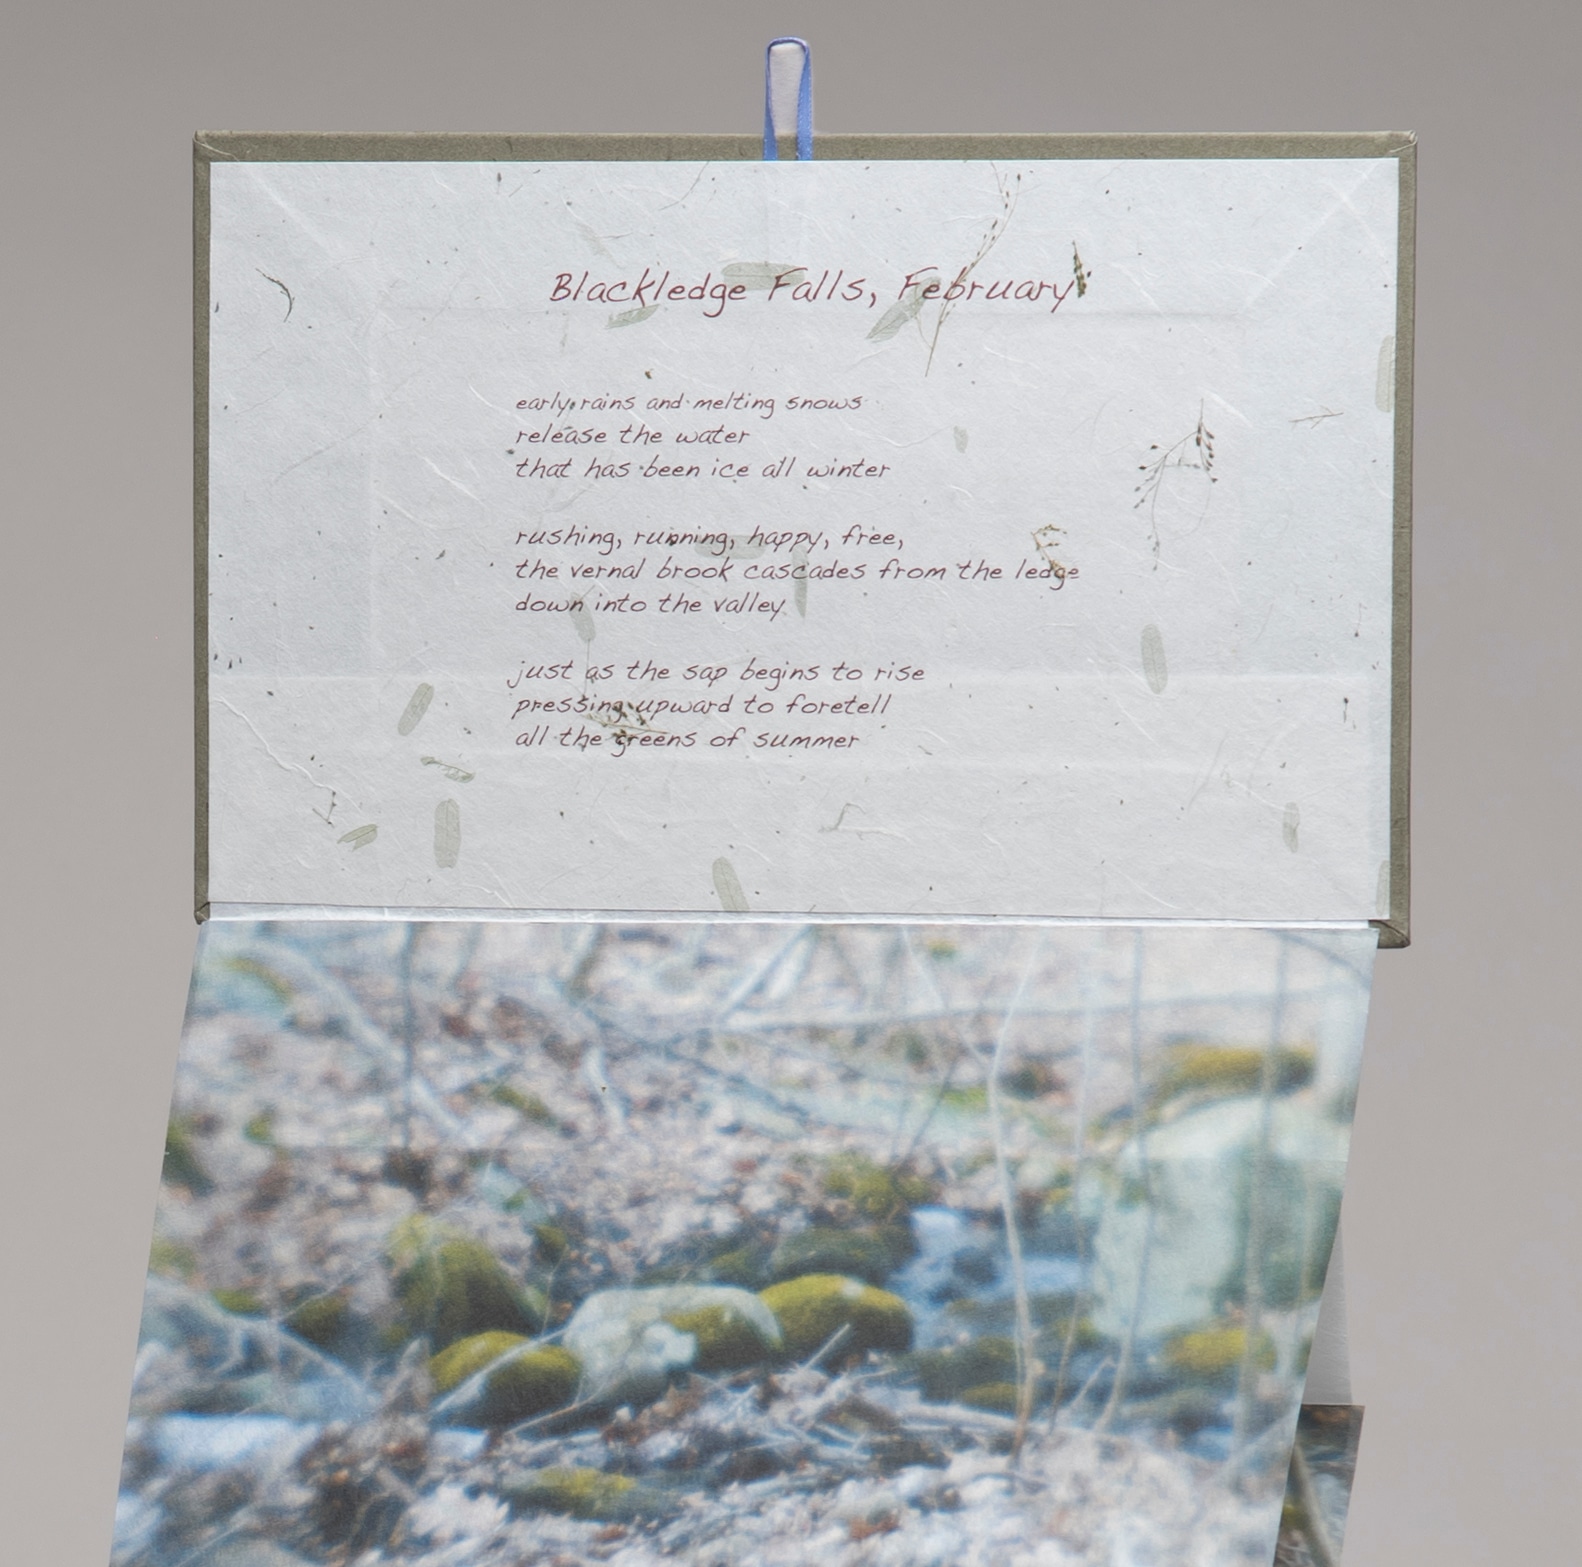 Blackledge Falls, February
early rains and melting snows
release the water
that has been ice all winter
rushing, running, happy, free,
the vernal brook cascades from the ledge
down into the valley
just as the sap begins to rise
pressing upward to foretell
all the greens of summer